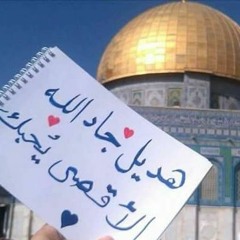 هديل جاد الله
الأقصى يُحبك